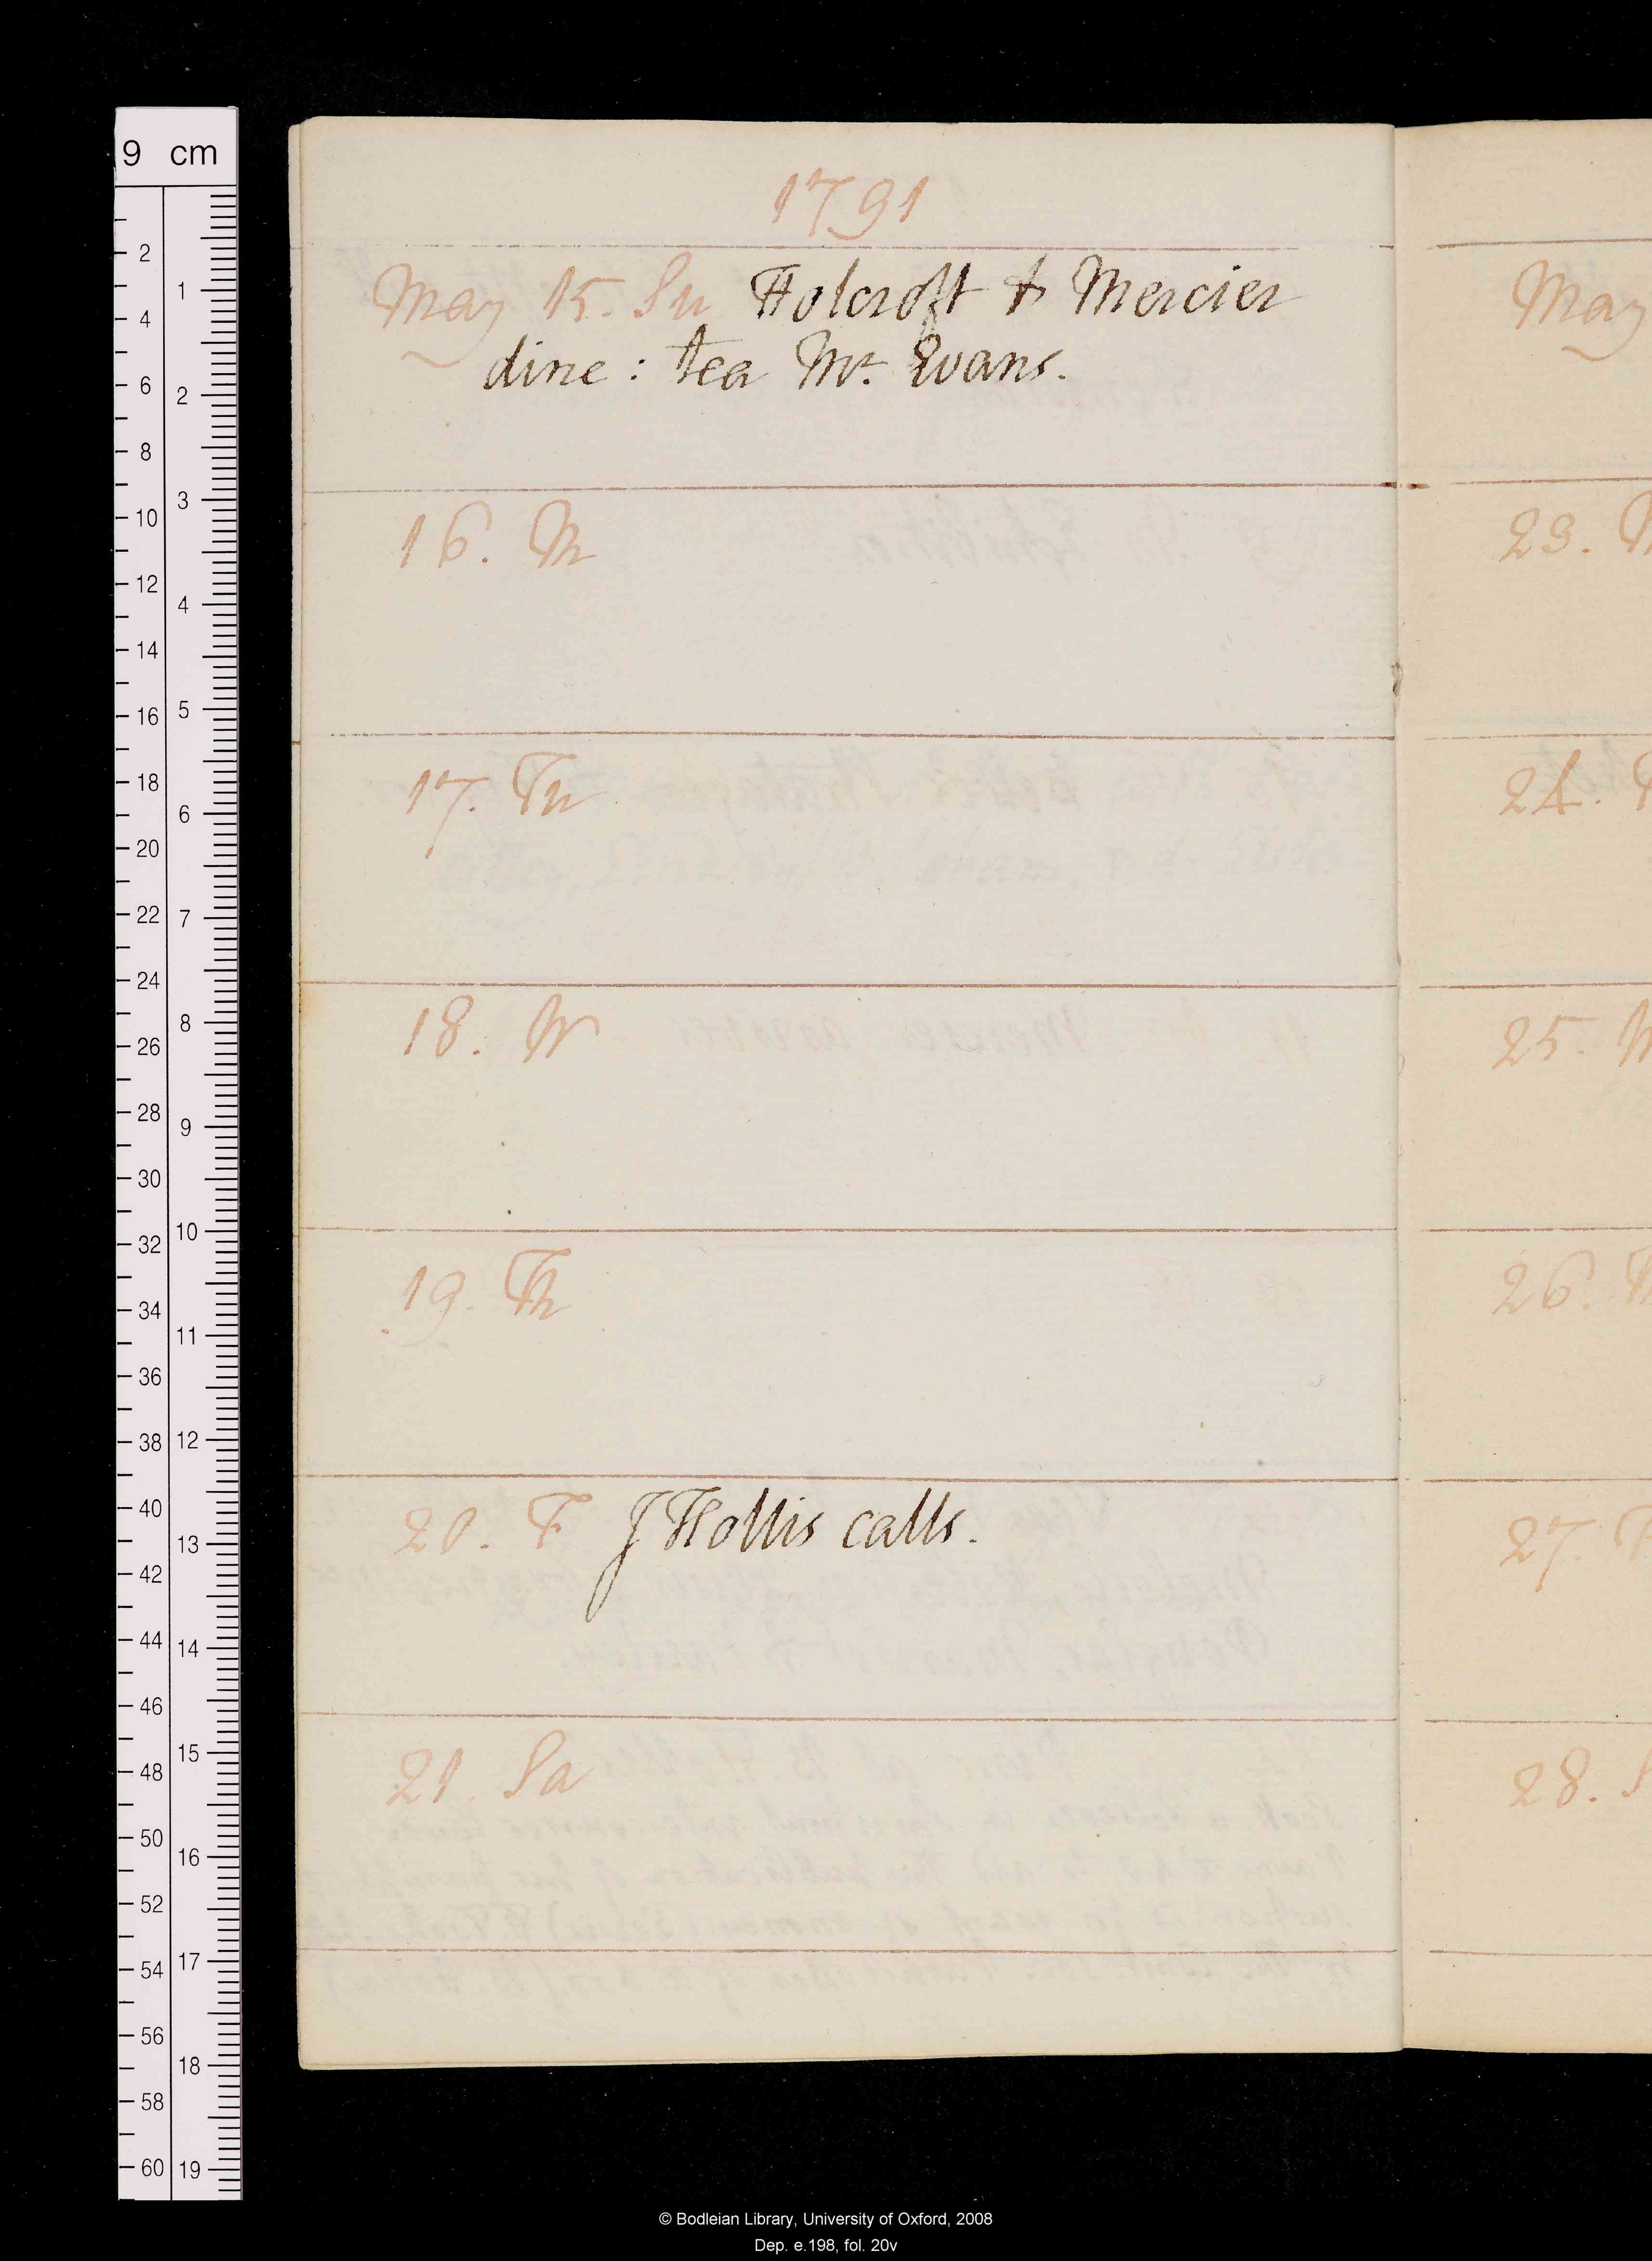 1791
May 15. Su Holcroft & Mercier
dine : tea Mr. Evans.
16. M
17. Tu
18. W
19. Th
20. F J Hollis calls.
21. Sa
May
23. M
24. T
25. W
26. Th
27. F
28. S
9 cm
2
4
6
8
10
12
14
16
18
20
22
24
26
28
30
32
34
36
38
40
42
44
46
48
50
52
54
56
58
60
1
2
3
4
5
6
7
8
9
10
11
12
13
14
15
16
17
18
19
© Bodleian Library, University of Oxford, 2008
Dep. e.198, fol. 20v